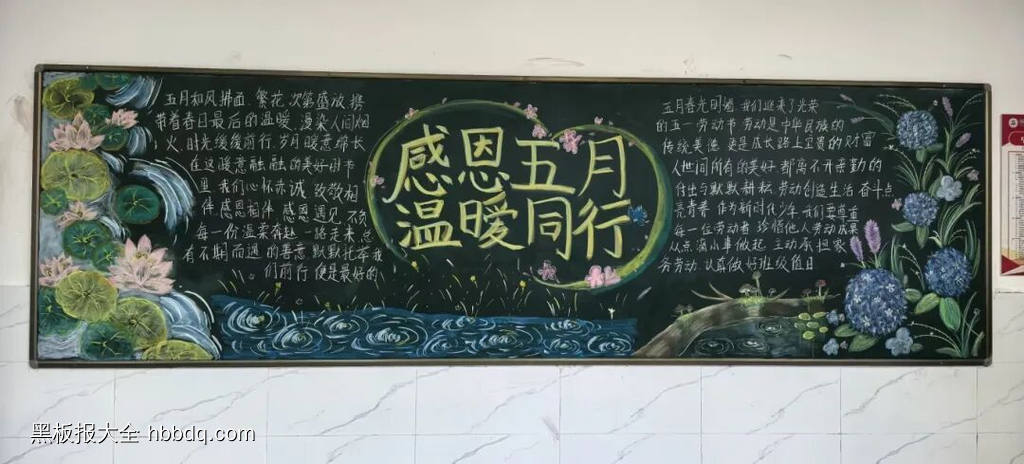 五月和风拂面 繁花次第盛放 携
带着春日最后的温暖 漫染人间烟
火 时光缓缓前行 岁月暖意绵长
在这暖意融融的美好时节
里 我们心怀赤诚 致敬相
伴 感恩相伴 感恩遇见 不负
每一份温柔奔赴 一路走来 总
有不期而遇的善意 默默托举我
们前行 便是最好的
感恩五月
温暖同行
五月春光明媚 我们迎来了光荣
的五一劳动节 劳动是中华民族的
传统美德 更是成长路上宝贵的财富
人世间所有的美好 都离不开辛勤的
付出与默默耕耘 劳动创造生活 奋斗点
亮青春 作为新时代少年 我们要尊重
每一位劳动者 珍惜他人劳动成果
从点滴小事做起 主动承担家
务劳动 认真做好班级值日
黑板报大全 hbbdq.com